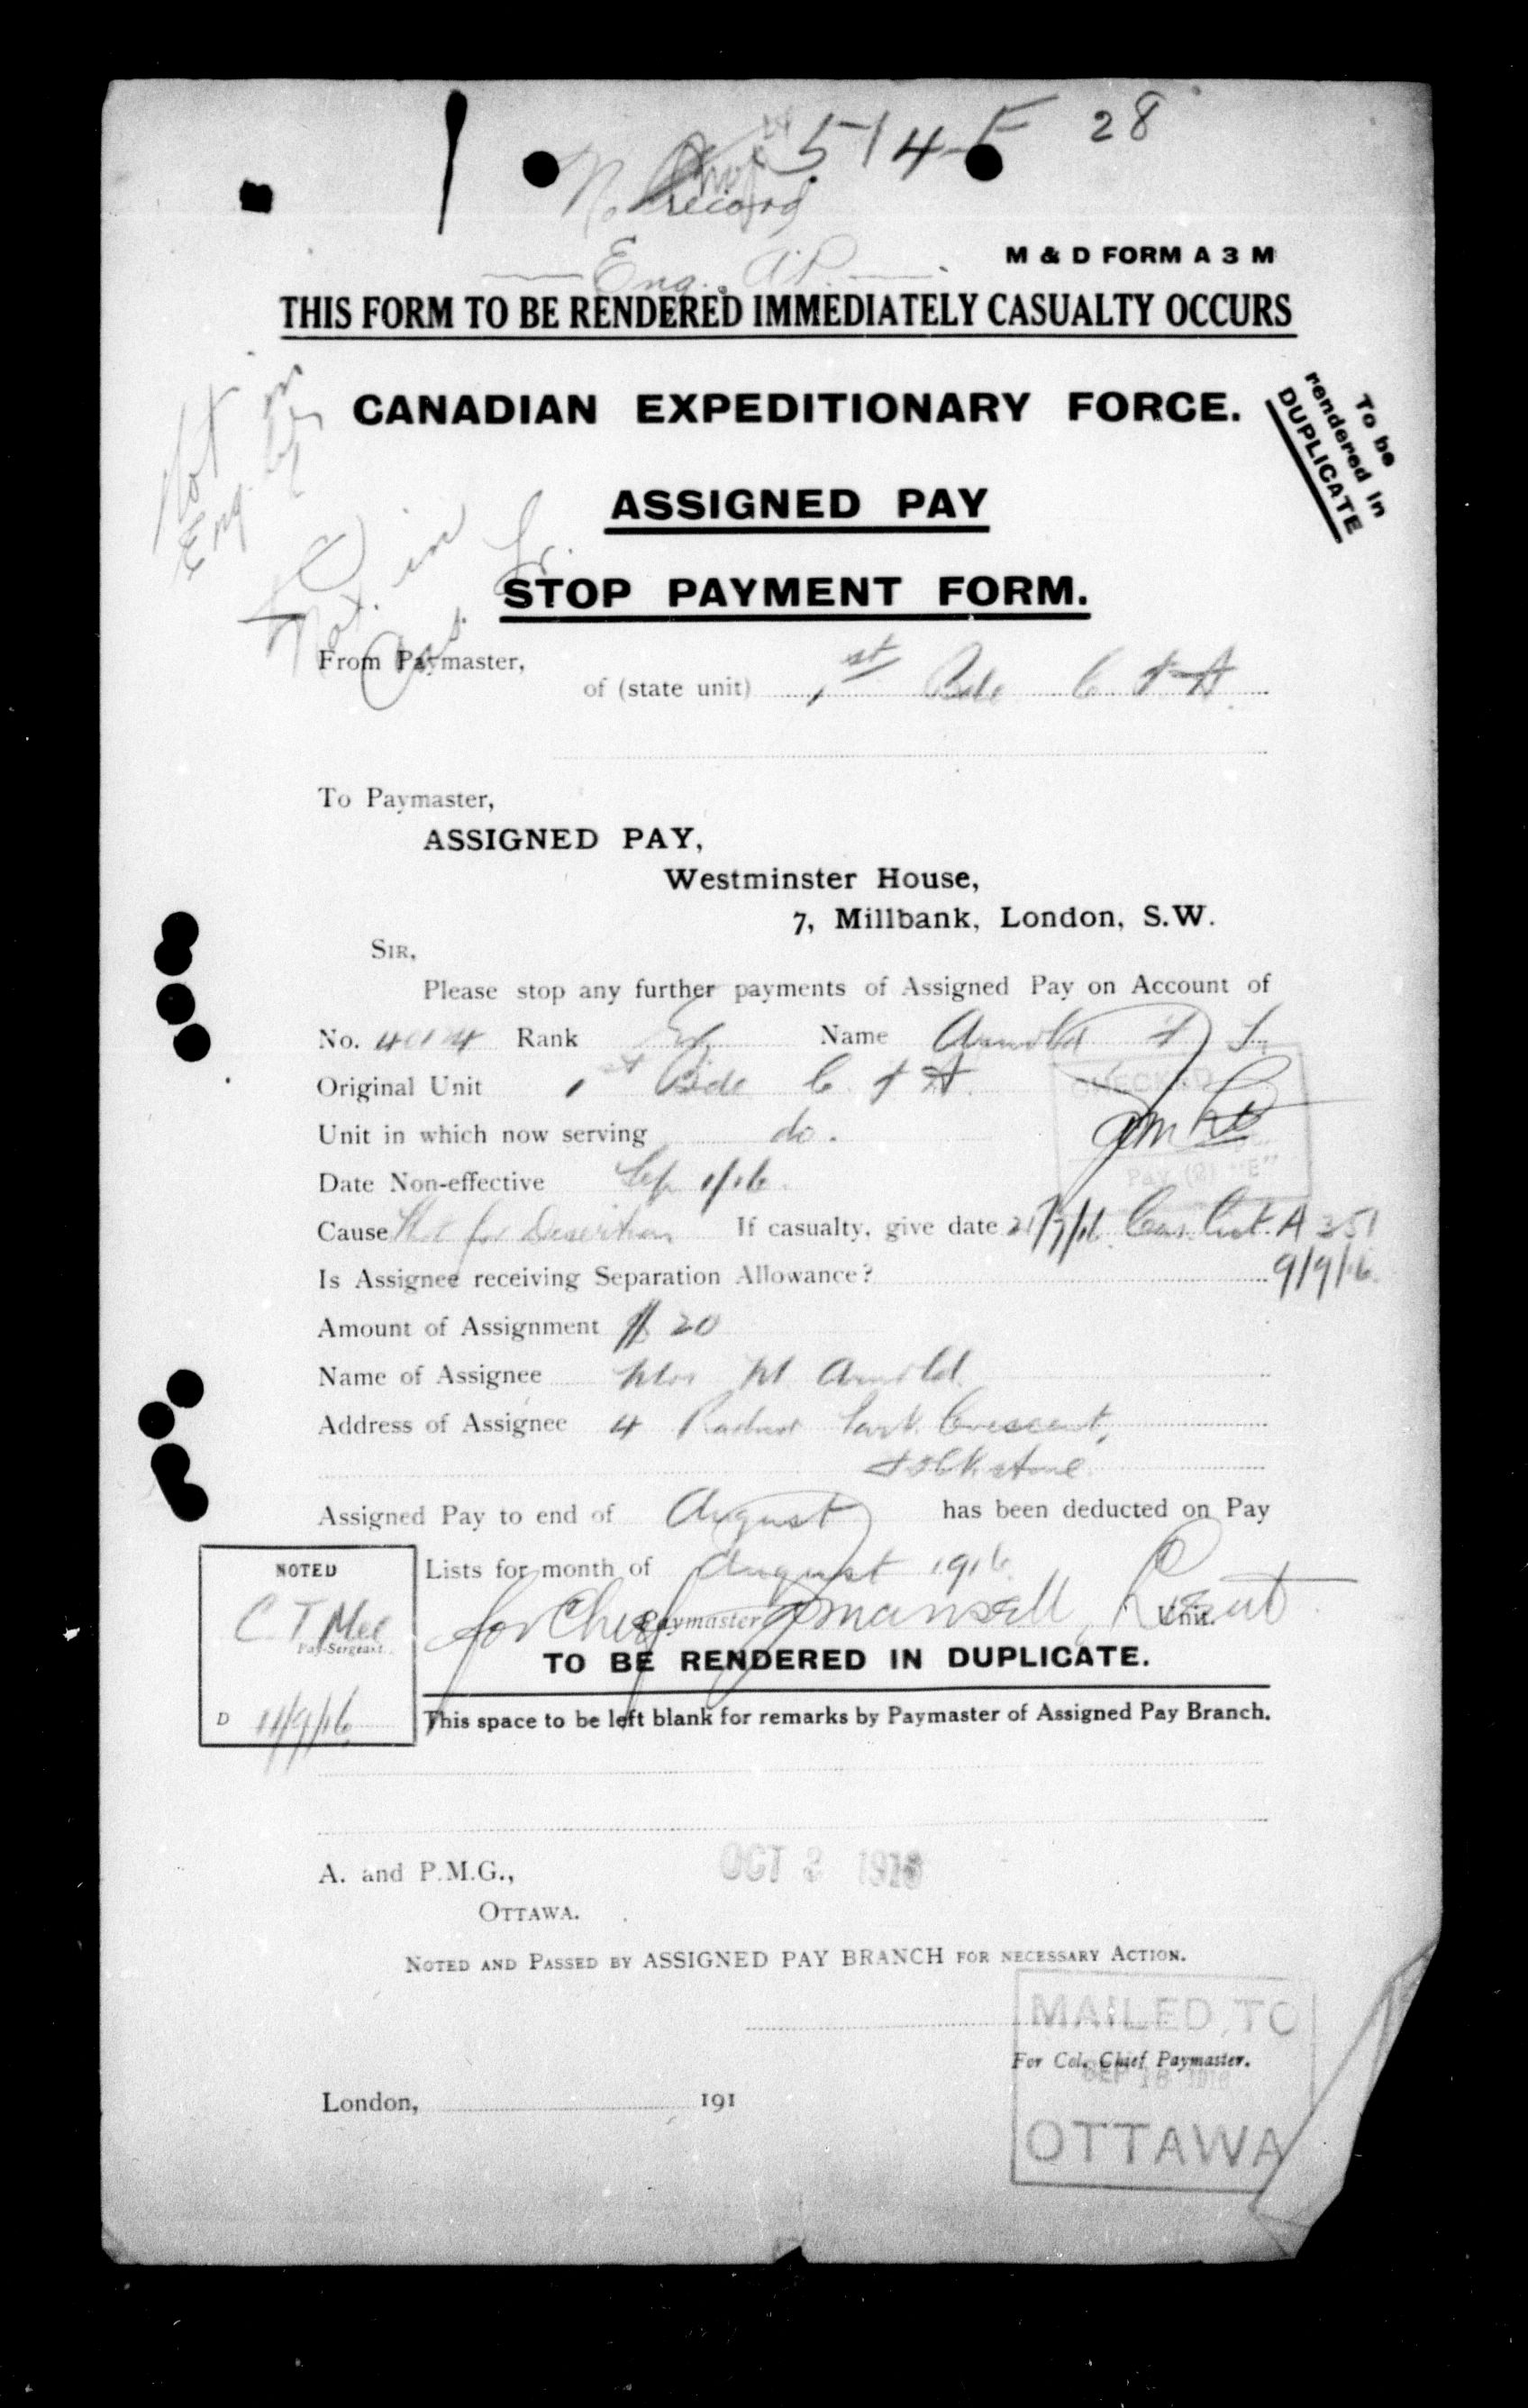 5145 28
No record
Eng. A.P.
M & D FORM A 3 M
THIS FORM TO BE RENDERED IMMEDIATELY CASUALTY OCCURS
Not in
Eng.
CANADIAN EXPEDITIONARY FORCE.
To be
rendered in
DUPLICATE
ASSIGNED PAY
Not in
Cas.
STOP PAYMENT FORM.
From Paymaster,
of (state unit) 1st Bde C F A.
To Paymaster,
ASSIGNED PAY,
Westminster House,
7, Millbank, London, S.W.
SIR,
Please stop any further payments of Assigned Pay on Account of
No. Rank Name Arnold F
Original Unit 1st Bde C F A.
CHECKED
Unit in which now serving do.
Pay (2) "E"
Date Non-effective Sep 1/16.
Cause Shot for Desertion If casualty, give date Cas. List. A 351
9/9/16.
Is Assignee receiving Separation Allowance?
Amount of Assignment $ 20
Name of Assignee Mrs M Arnold
Address of Assignee 4 Radnor Park Crescent,
Folkstone
Assigned Pay to end of August has been deducted on Pay
Lists for month of August 1916.
NOTED
C T Mee
Pay-Sergeant.
D 11/9/16
for Chief Paymaster Mansell, Lieut Unit.
TO BE RENDERED IN DUPLICATE.
This space to be left blank for remarks by Paymaster of Assigned Pay Branch.
A. and P.M.G.,
OCT 1916
OTTAWA.
NOTED AND PASSED BY ASSIGNED PAY BRANCH FOR NECESSARY ACTION.
MAILED TO
For Col. Chief Paymaster.
SEP 18 1916
London, 191
OTTAWA